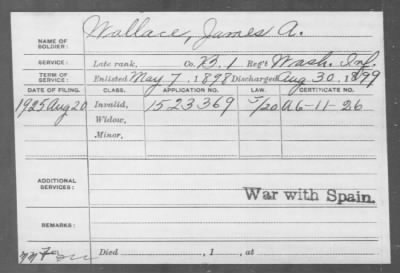 Wallace, James A.
NAME OF SOLDIER:
SERVICE: Late rank, Co. B. 1 Reg't Wash. Inf.
TERM OF SERVICE: Enlisted May 7, 1898 Discharged Aug 30, 1899
DATE OF FILING. CLASS. APPLICATION NO. LAW. CERTIFICATE NO.
1925 Aug 20 Invalid, 1523369 A6-11-26
Widow,
Minor,
ADDITIONAL SERVICES:
War with Spain.
REMARKS:
Died , 1 , at